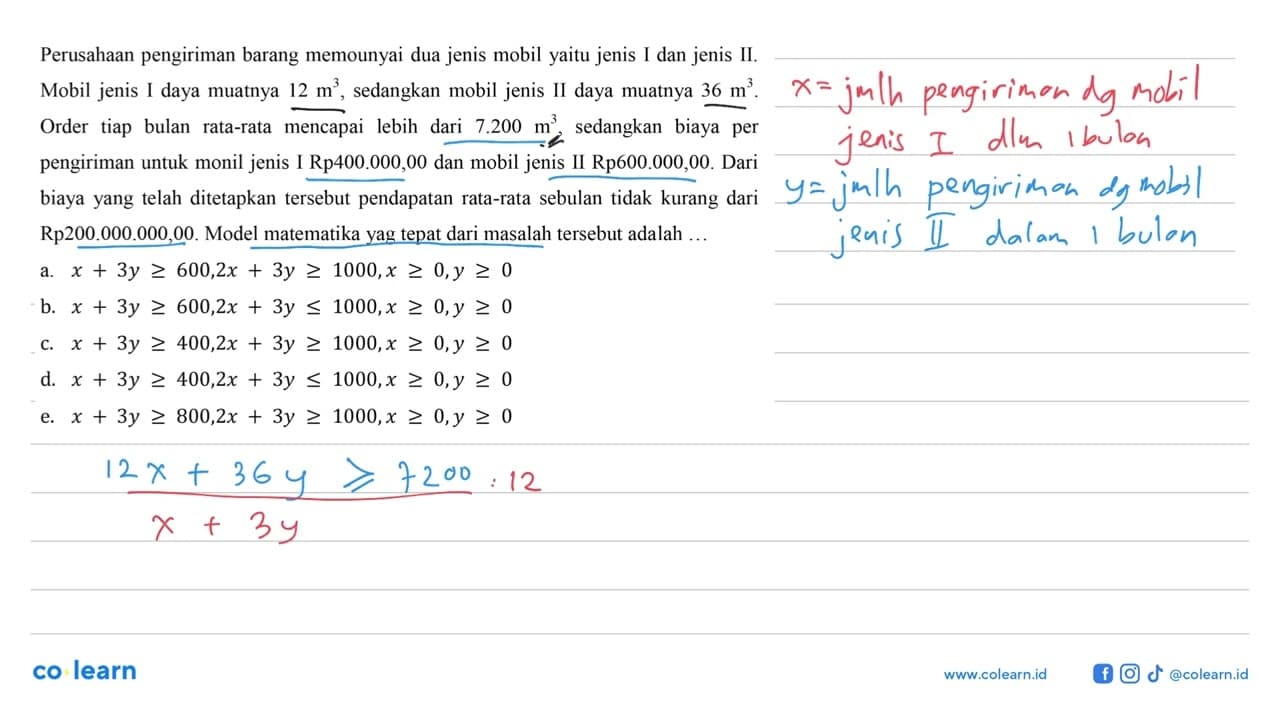 Perusahaan pengiriman barang memounyai dua jenis mobil yaitu jenis I dan jenis II.
Mobil jenis I daya muatnya 12 m³, sedangkan mobil jenis II daya muatnya 36 m³.
Order tiap bulan rata-rata mencapai lebih dari 7.200 m³, sedangkan biaya per
pengiriman untuk monil jenis I Rp400.000,00 dan mobil jenis II Rp600.000,00. Dari
biaya yang telah ditetapkan tersebut pendapatan rata-rata sebulan tidak kurang dari
Rp200.000.000,00. Model matematika yag tepat dari masalah tersebut adalah …
a. x + 3y ≥ 600,2x + 3y ≥ 1000, x ≥ 0, y ≥ 0
b. x + 3y ≥ 600,2x + 3y ≤ 1000, x ≥ 0, y ≥ 0
c. x + 3y ≥ 400,2x + 3y ≥ 1000, x ≥ 0, y ≥ 0
d. x + 3y ≥ 400,2x + 3y ≤ 1000, x ≥ 0, y ≥ 0
e. x + 3y ≥ 800,2x + 3y ≥ 1000, x ≥ 0, y ≥ 0
x = jmlh pengiriman dg mobil
jenis I dlm 1 bulan
y = jmlh pengiriman dg mobil
jenis II dalam 1 bulan
12x + 36y ≥ 7200 : 12
x + 3y
co learn
www.colearn.id
@colearn.id